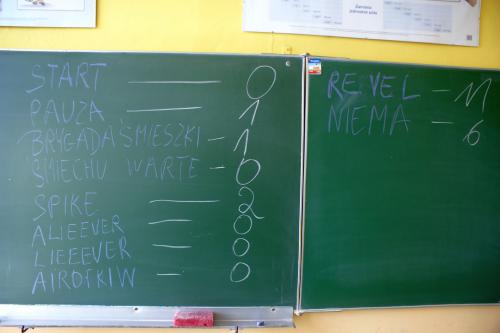 START — 0
PAUZA — 1
BRYGADA ŚMIESZKI – 1
ŚMIECHU WARTE – 0
SPIKE — 2
ALIEEVER — 0
LIEEEVER — 0
AIROFKIW — 0
REVEL – 11
NIEMA – 6